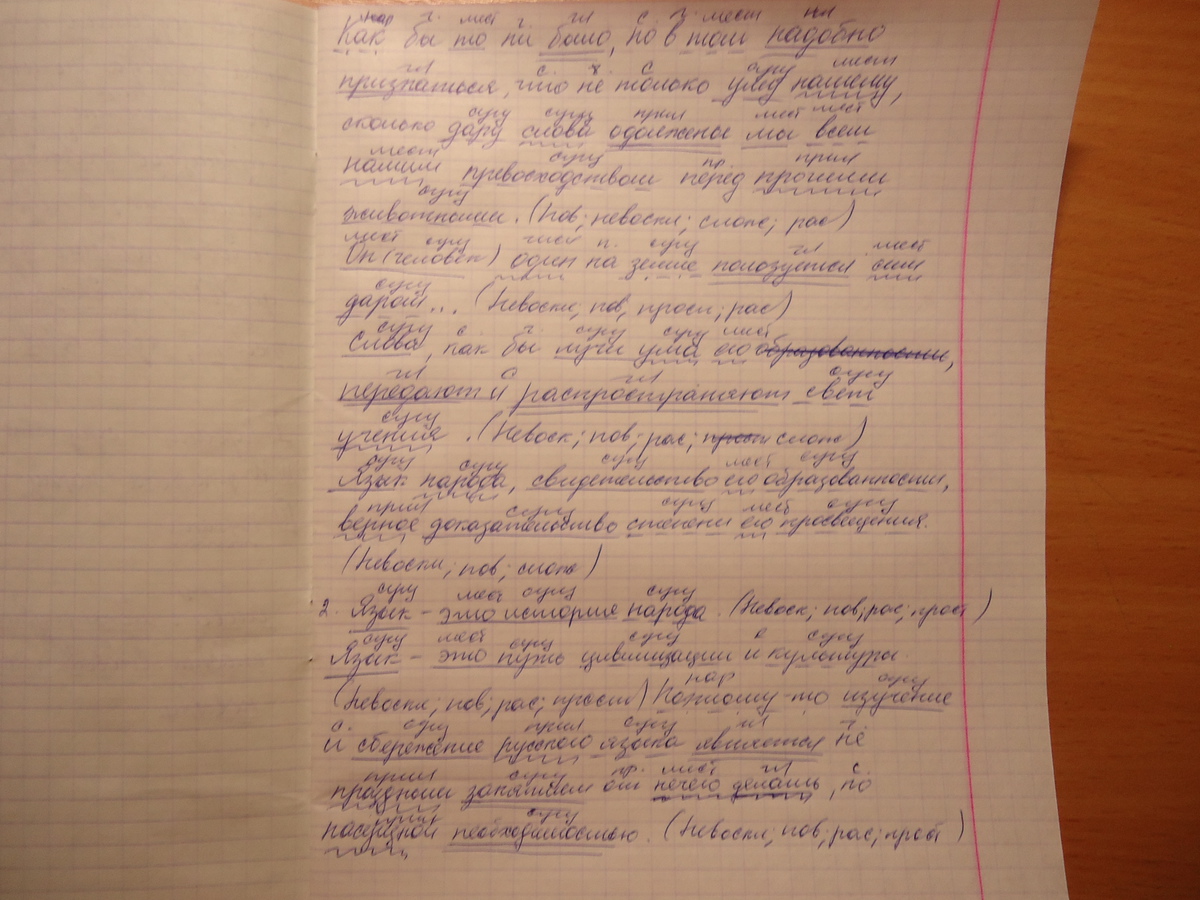 нар ч. мест ч. гл с. п. мест нл
Как бы то ни было, но в том надобно
гл с. ч. с сущ мест
признаться, что не только уму нашему,
сущ сущ прил мест мест
сколько дару слова одолжены мы всем
мест сущ пр прил
нашим превосходством перед прочими
сущ
животными. (Пов; невоскл; слож; рас)
мест сущ числ п. сущ гл мест
Он (человек) один на земле пользуется сим
сущ
даром... (Невоскл; пов; прост; рас)
сущ с ч. сущ сущ мест
Слова, как бы лучи ума его образованности,
гл с гл сущ
передают и распространяют свет
сущ
учения. (Невоск; пов; рас; прост слож)
сущ сущ сущ мест сущ
Язык народа, свидетельство его образованности,
прил сущ сущ мест сущ
верное доказательство степени его просвещения.
(Невоскл; пов; слож)
сущ мест сущ сущ
2. Язык - это история народа. (Невоск; пов; рас; прост)
сущ мест сущ сущ с сущ
Язык - это путь цивилизации и культуры.
нар сущ
(Невоскл; пов; рас; прост) Поэтому-то изучение
с. сущ прил сущ гл ч.
и сбережение русского языка является не
прил сущ пр. мест гл с.
праздным занятием от нечего делать, но
сущ
насущной необходимостью. (Невоскл; пов; рас; прост)